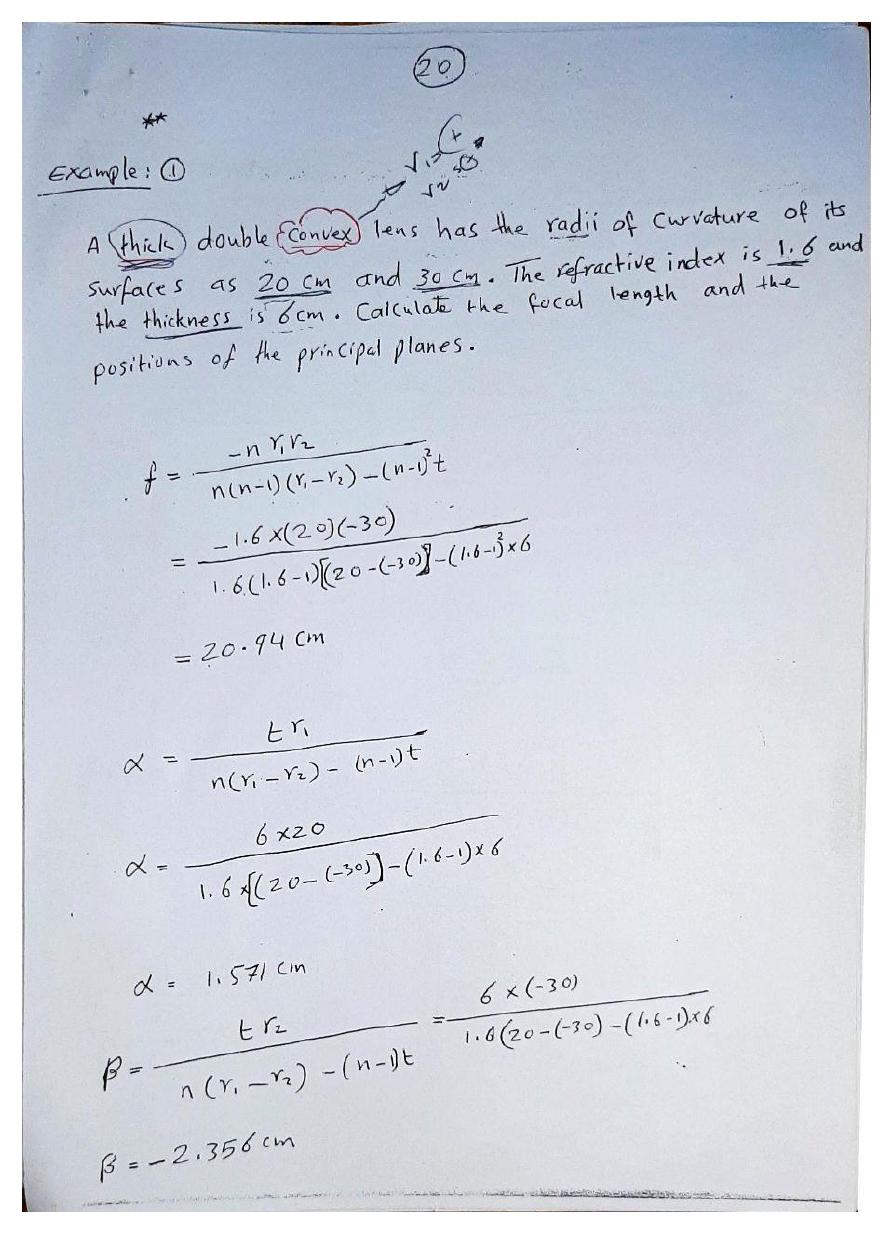 20
**
Example: ①
r₁ = +
r₂
A thick double convex lens has the radii of curvature of its
surfaces as 20 cm and 30 cm. The refractive index is 1.6 and
the thickness is 6cm. Calculate the focal length and the
positions of the principal planes.
f = -n r₁ r₂ / n(n-1)(r₁-r₂)-(n-1)²t
= -1.6 x(20)(-30) / 1.6(1.6-1)[(20-(-30)]-(1.6-1)²x6
= 20.94 cm
α = t r₁ / n(r₁-r₂) - (n-1)t
α = 6 x20 / 1.6 x[(20-(-30)]-(1.6-1)x6
α = 1.571 cm
β = t r₂ / n(r₁-r₂)-(n-1)t = 6 x(-30) / 1.6(20-(-30)-(1.6-1)x6
β = -2.356 cm